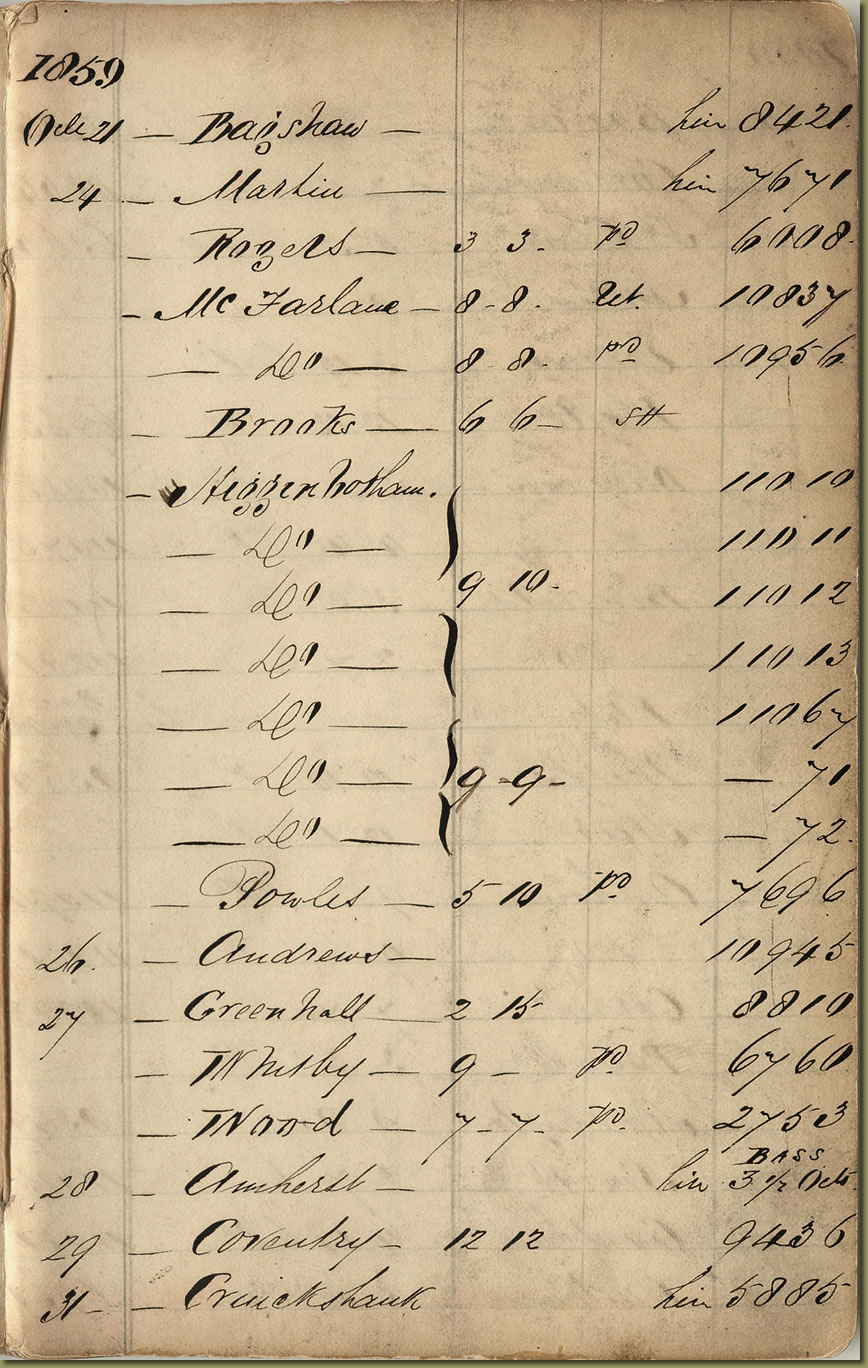 1859
Octr 21 — Bagshaw — hire 8421.
24 — Martin — hire 7671
— Rogers — 3 3. pd 6008.
— McFarlane — 8-8. Ret. 10837
— Do — 8 8. pd 10956
— Brooks — 6 6— SH
— Higgenbotham. 11010
— Do — 11011
— Do — 9 10. 11012
— Do — 11013
— Do — 11067
— Do — 9-9— — 71
— Do — — 72.
— Powles — 5 10 pd 7696
26. — Andrews — 10945
27 — Greenhall — 2 15 8810
— Whisby — 9 — pd 6760
— Wood — 7-7. pd. 2753
BASS
28 — Amherst — hire 3 1/2 Octs.
29 — Coventry — 12 12 9436
31— — Cruickshank hire 5885